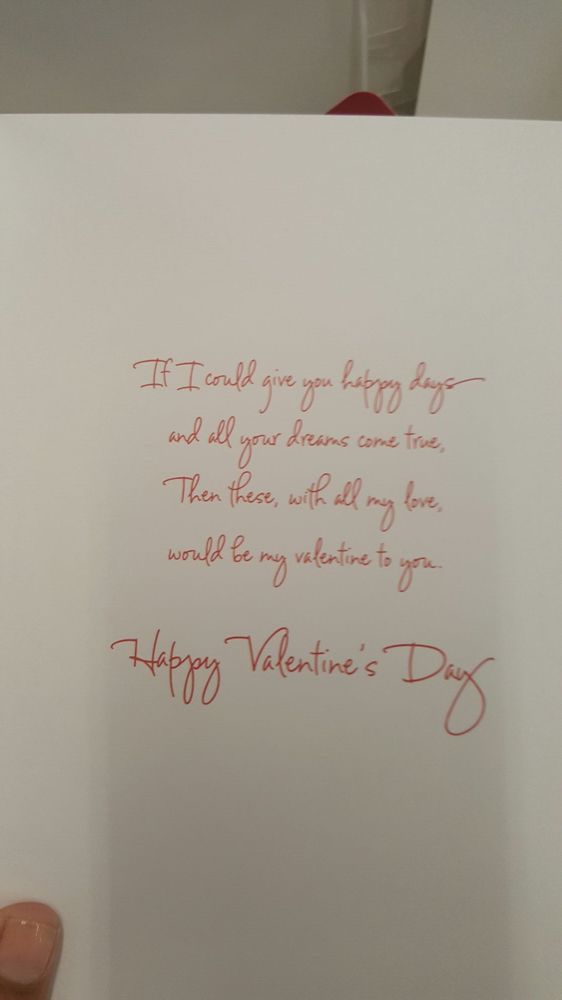 If I could give you happy days
and all your dreams come true,
Then these, with all my love,
would be my valentine to you.
Happy Valentine's Day